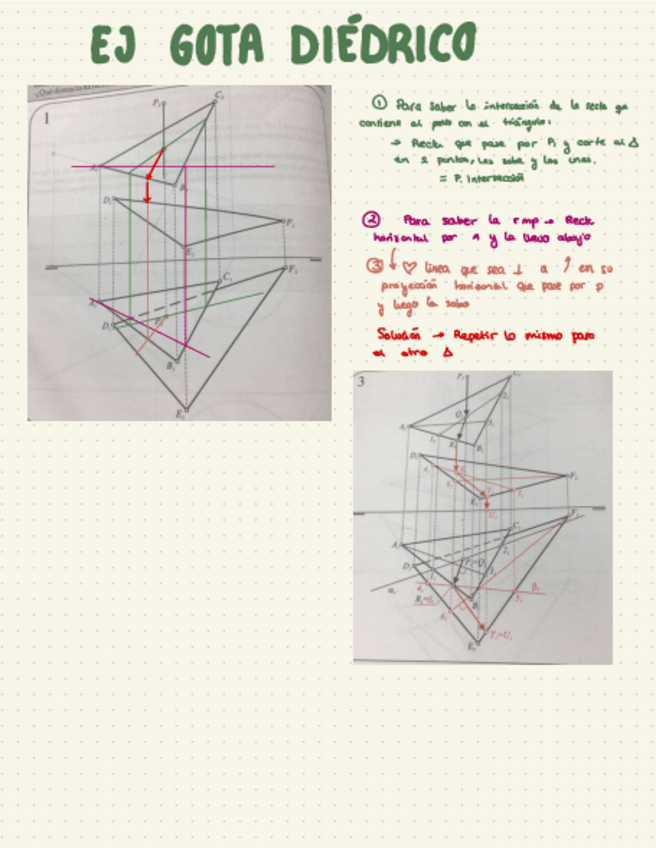 EJ GOTA DIÉDRICO
¿Qué distancia
1
P₂
C₂
A₂
B₂
D₂
F₂
E₂
F₁
C₁
A₁
D₁
P₁
B₁
E₁
① Para saber la intersección de la recta que
contiene al punto con el triángulo:
→ Recta que pase por P₁ y corte al Δ
en 2 puntos, los sube y los unes.
= P. Intersección
② Para saber la rmp → Recta
horizontal por A y la llevo abajo
③ ↓ ♡ línea que sea ⊥ a ↑ en su
proyección horizontal que pase por p
y luego la subo
Solución → Repetir lo mismo para
el otro Δ
3
P₂
A₂
B₂
D₂
F₂
C₁
A₁
D₁
B₁
T₁=U₁
E₁